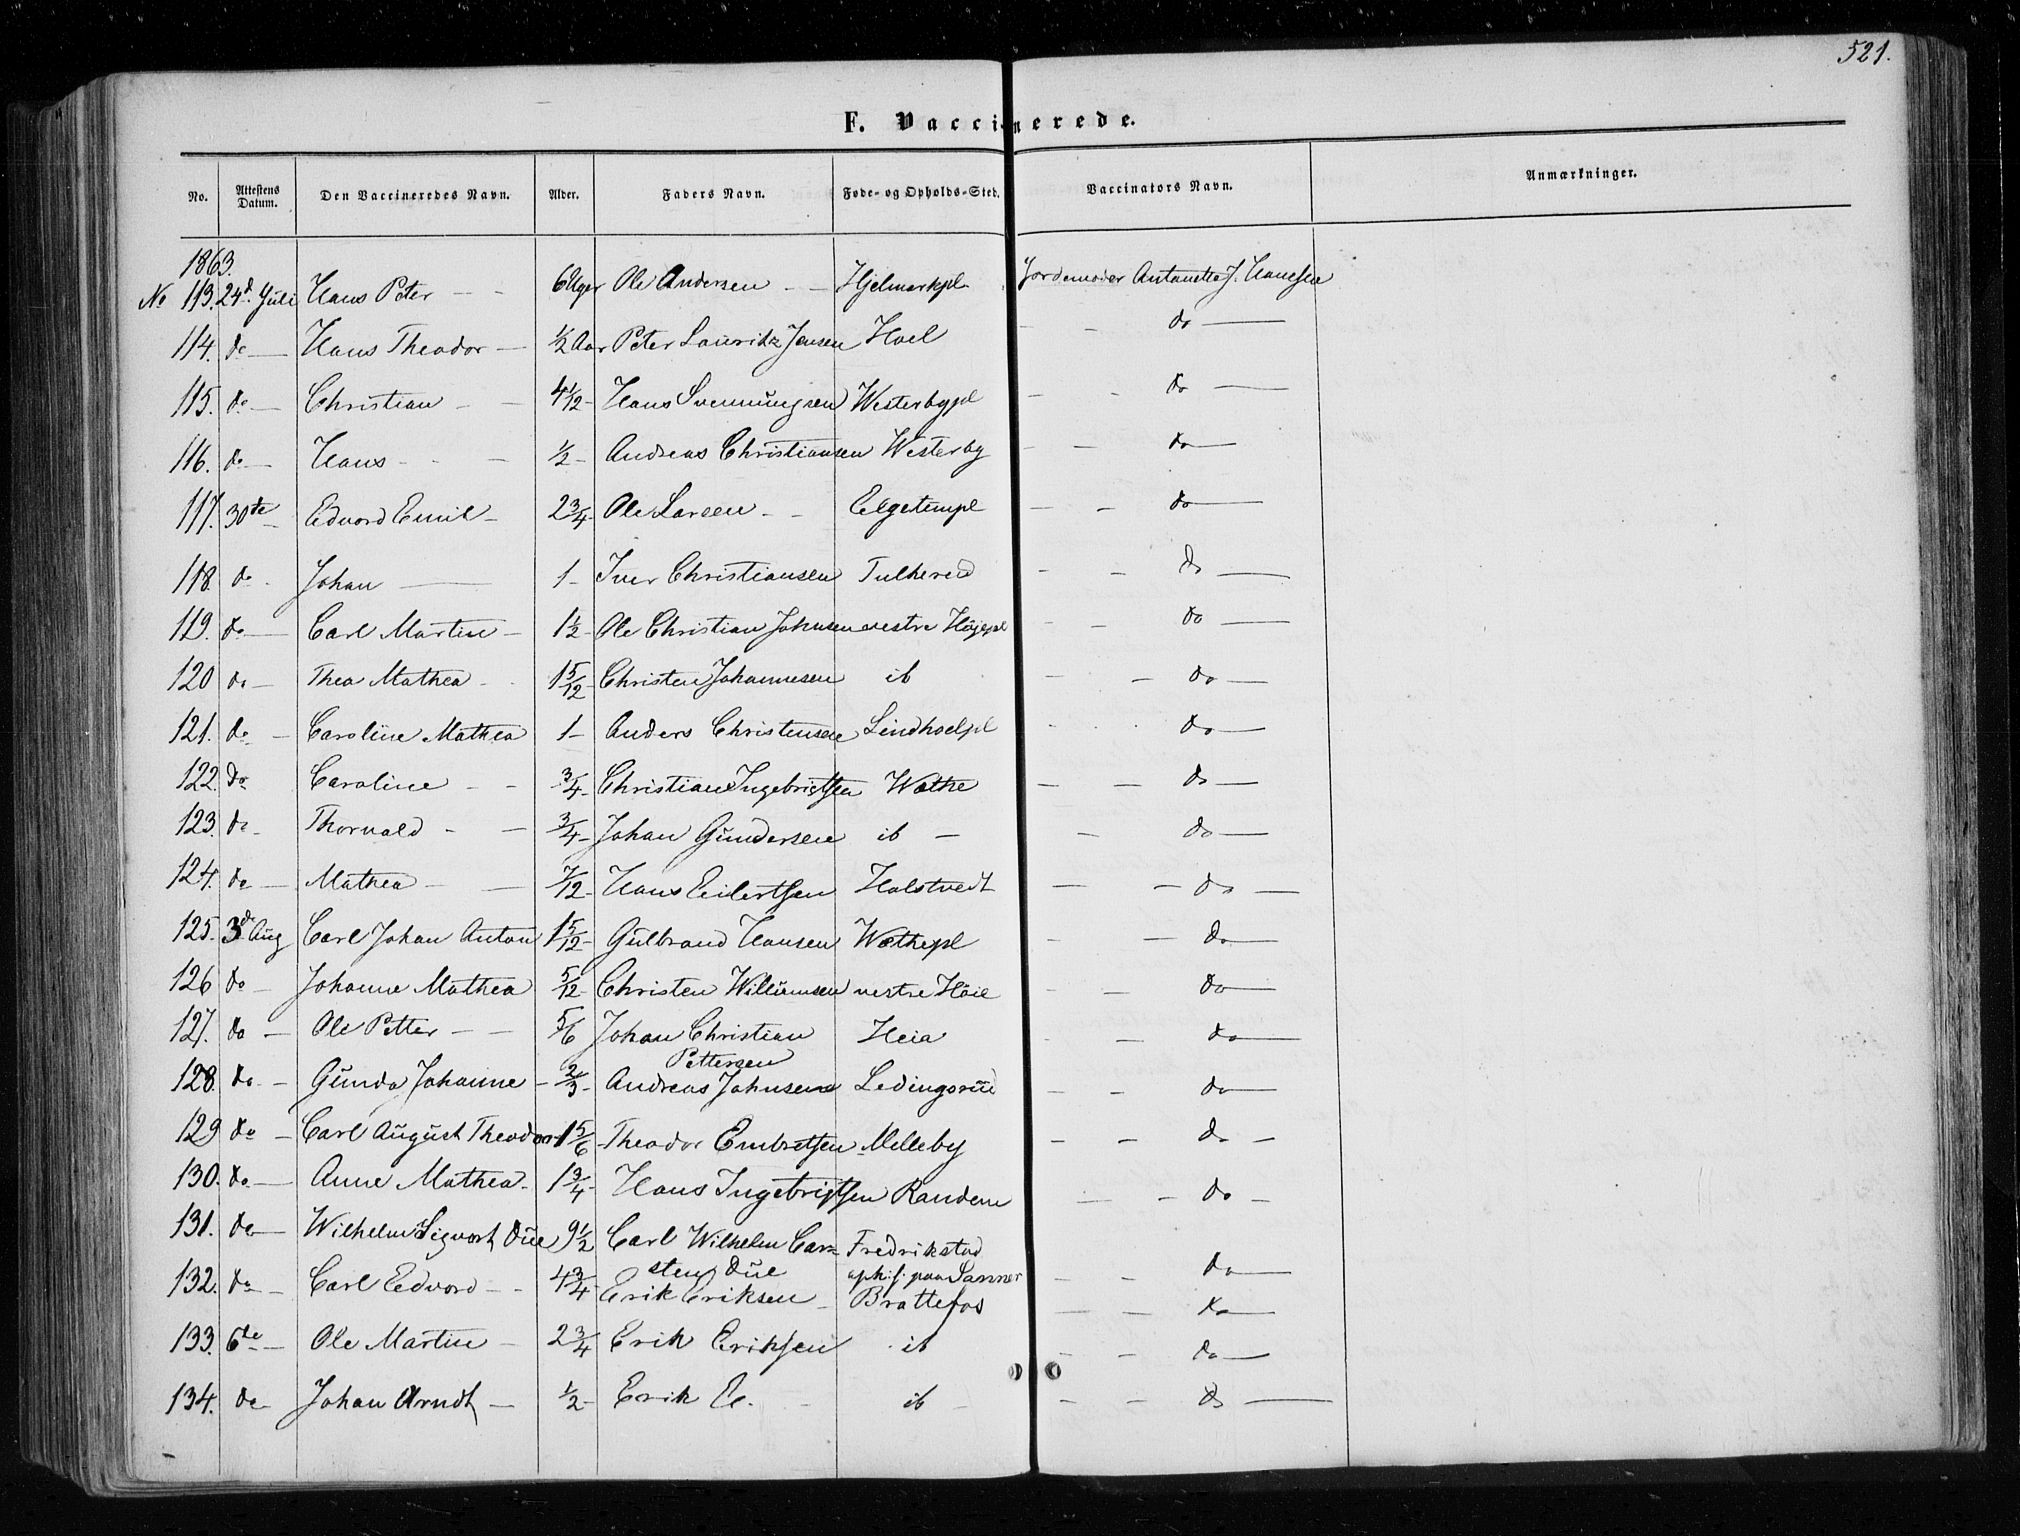 521.
F. Vaccinerede.
No. Attestens Datum. Den Vaccineredes Navn. Alder. Faders Navn. Føde- og Opholds-Sted. Vaccinators Navn. Anmærkninger.
1863.
No 113. 24d. Juli Hans Peter - - 6 Uger Ole Andersen - - Hjelmarkpl. Jordemoder Antonette J. Hansen
114. do — Hans Theodor — 1/2 Aar Peter Lauritz Jensen Hoel - - do —
115. do — Christian - - 4 1/12 - Hans Svennungsen Westerbypl - - do —
116. do — Hans - - - 1/2 - Andreas Christiansen Westerby - - do —
117. 30te - Edvard Emil - 2 3/4 - Ole Larsen - - Elgetunpl - - do —
118. do - Johan — 1 - Iver Christiansen Tutherud - - do —
119. do — Carl Martin - 1 1/2 - Ole Christian Johnsen vestre Höjepl - - do —
120 do - Thea Mathea - - 1 5/12 - Christen Johannesen ib - - do —
121. do - Caroline Mathea 1 - Anders Christensen Lindhoelpl - - do —
122. do Caroline - - 3/4 - Christian Ingebrigtsen Wathe - - do —
123. do - Thorvald - - 3/4 - Johan Gundersen ib - - do —
124. do — Mathea - - 7/12 - Hans Eilertsen Holstvedt - - do —
125. 3d Aug Carl Johan Anton 1 5/12 - Gulbrand Hansen Wathepl - - do —
126 do - Johanne Mathea 5/12 - Christen Willumsen vestre Höie - - do —
127. do - Ole Petter - - 5/6 Johan Christian Heia - - do —
Pettersen
128. do. - Gunda Johanne - 2/3 - Andreas Johnsen Ledingsrud - - do —
129 do - Carl August Theodor 1 5/6 - Theodor Embretsen Melleby - - do -
130. do — Anne Mathea - 1 3/4 - Hans Ingebrigtsen Randem - - do -
131. do — Wilhelm Sigvart Due 9 1/2 Carl Wilhelm Car- Fredrikstad
sten Due oph: s: paa Sanner - - do —
132. do - Carl Edvard - - 4 3/4 - Erik Eriksen - Brattefos - - do —
133. 6te - Ole Martin - 2 3/4 Erik Eriksen ib - - do —
134. do - Johan Arndt - 1/2 - Erik E. - ib - - do —